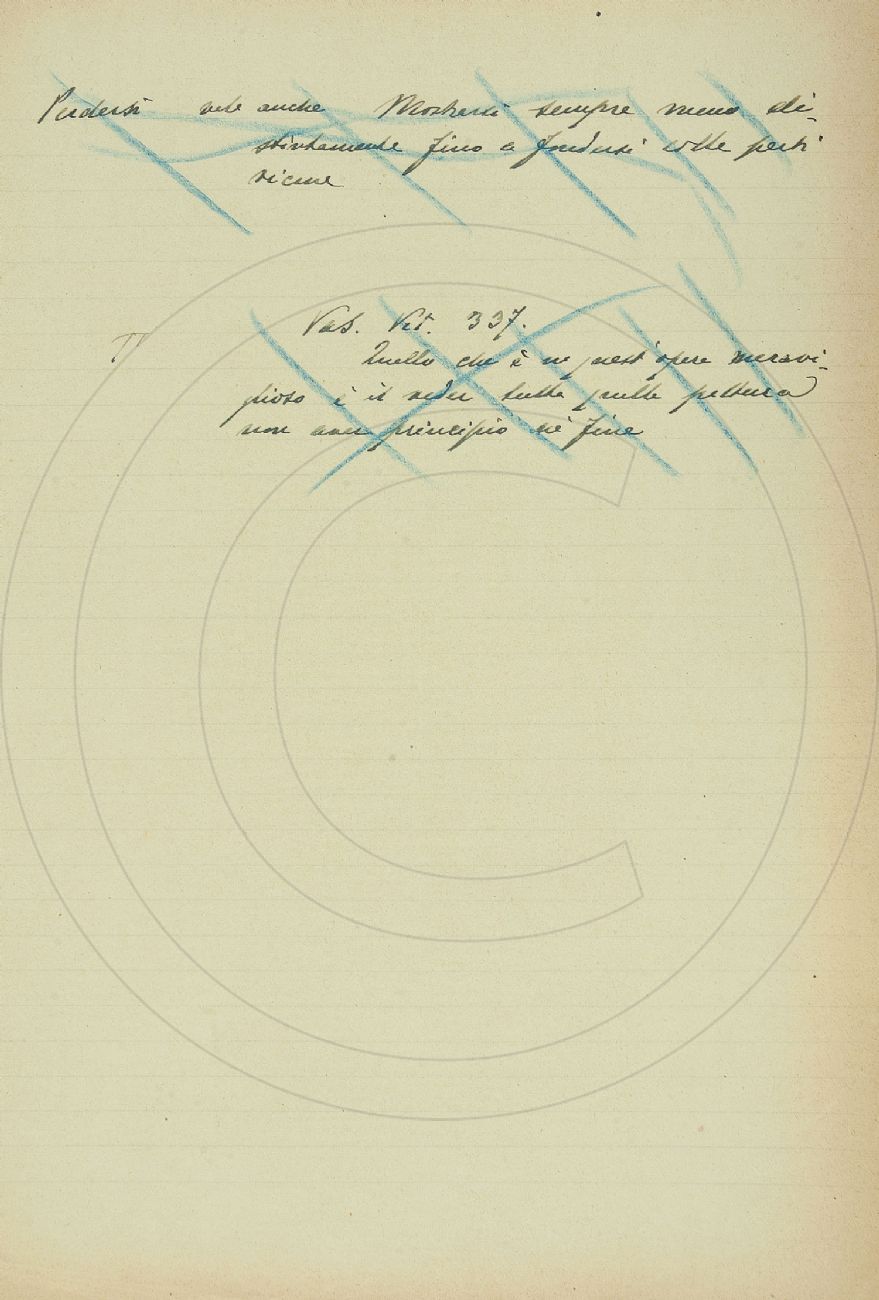 Perdersi vale anche Mostrarsi sempre meno di-
stintamente fino a fondersi colle parti
vicine
Vas. Vit. 337.
TT Quello che è in quest'opera meravi-
glioso è il veder tutta quella pittura
non aver principio nè fine